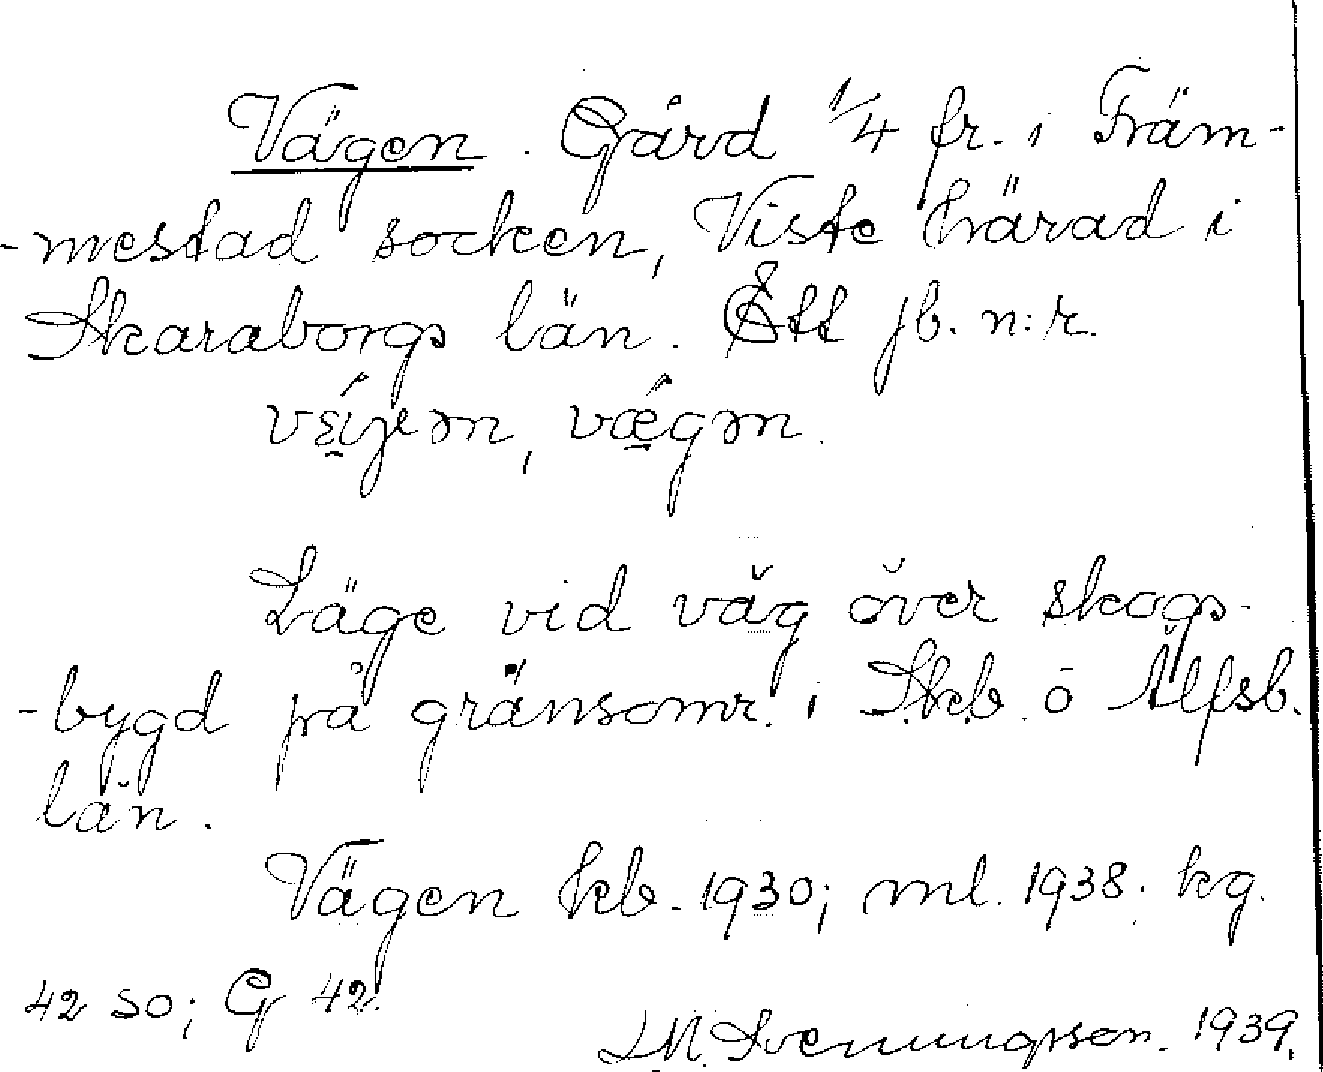 Vägen. Gård 1/4 fr. i Främ-
-mestad socken, Viste härad i
Skaraborgs län. Ett jb. n:r.
væ̂gən.
Läge vid väg över skogs-
-bygd på gränsomr. i Skb. o Älfsb.
län.
Vägen kb. 1930; ml. 1938. kg.
42 so; G 42.
Svenungsson. 1939.